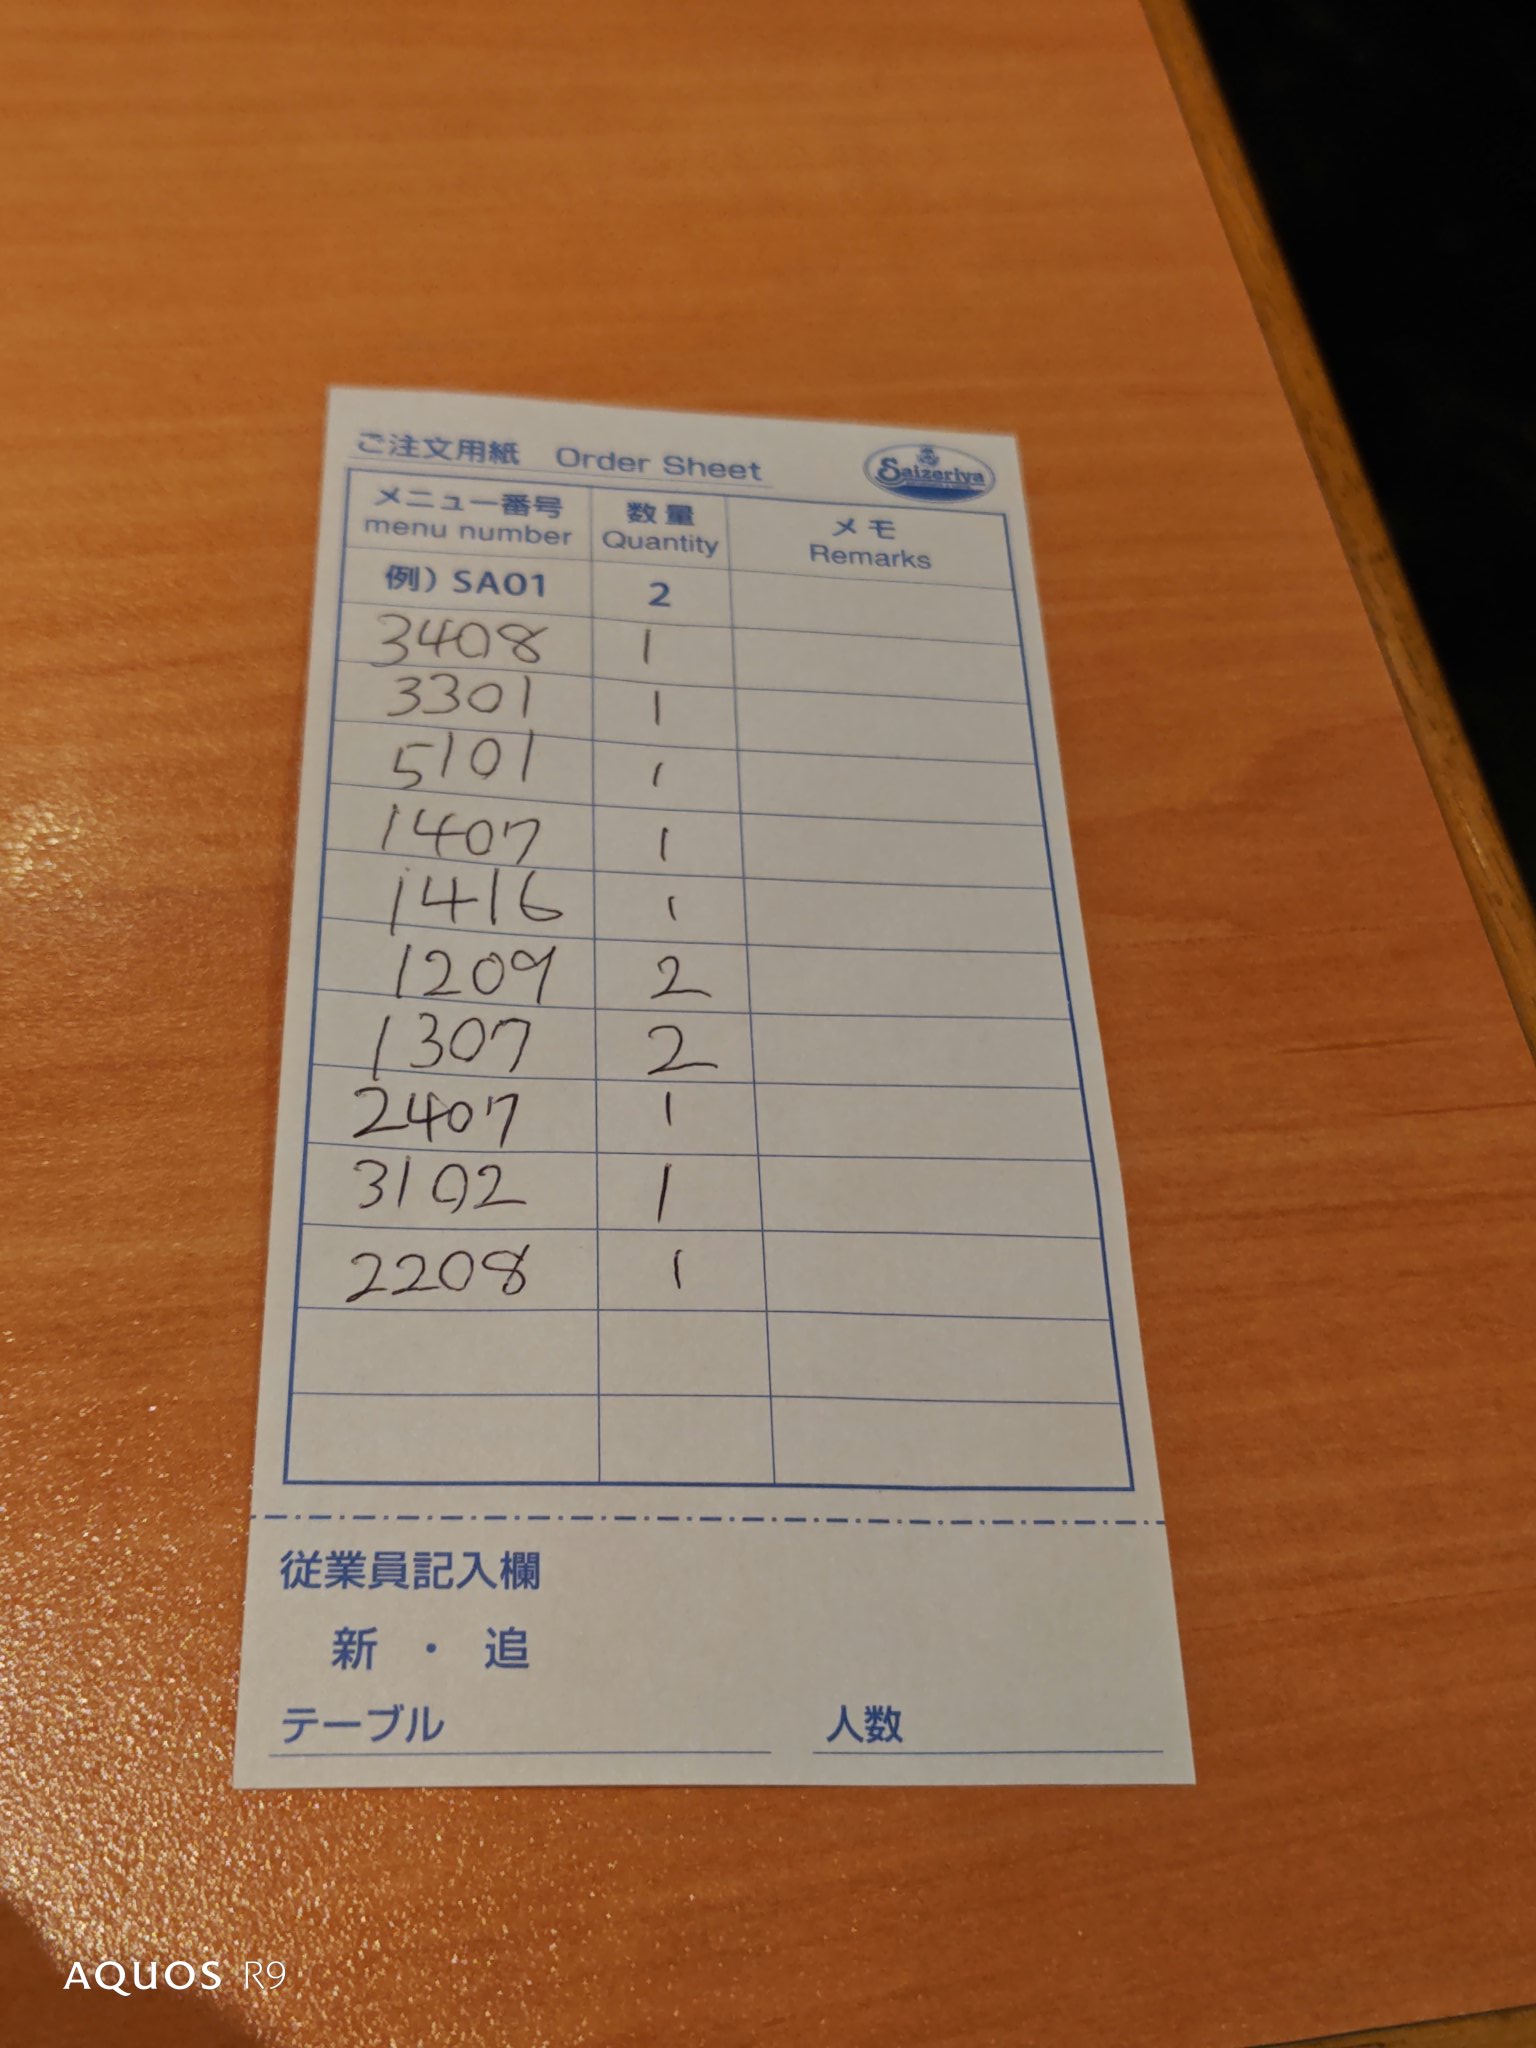 ご注文用紙 Order Sheet Saizeriya
メニュー番号 数量 メモ
menu number Quantity Remarks
例) SA01 2
3408 1
3301 1
5101 1
1407 1
1416 1
1209 2
1307 2
2407 1
3102 1
2208 1
従業員記入欄
新 ・ 追
テーブル 人数
AQUOS R9